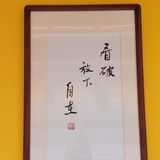 看破
放下
自在